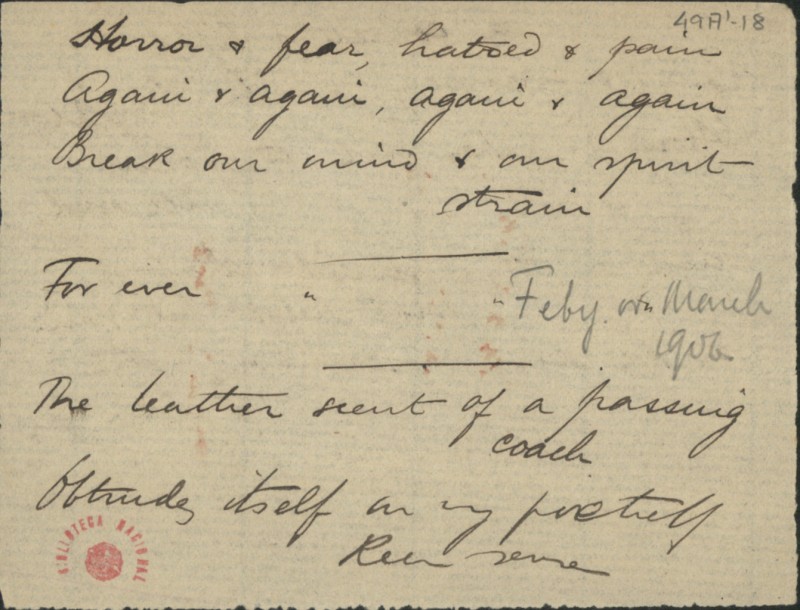 49A¹-18
Horror & fear, hatred & pain
Again & again, again & again
Break our mind & our spirit
strain
For ever " "
Feby. or March
1906
The leather scent of a passing
coach
Obtrudes itself on my
Keen sense
BIBLIOTECA NACIONAL